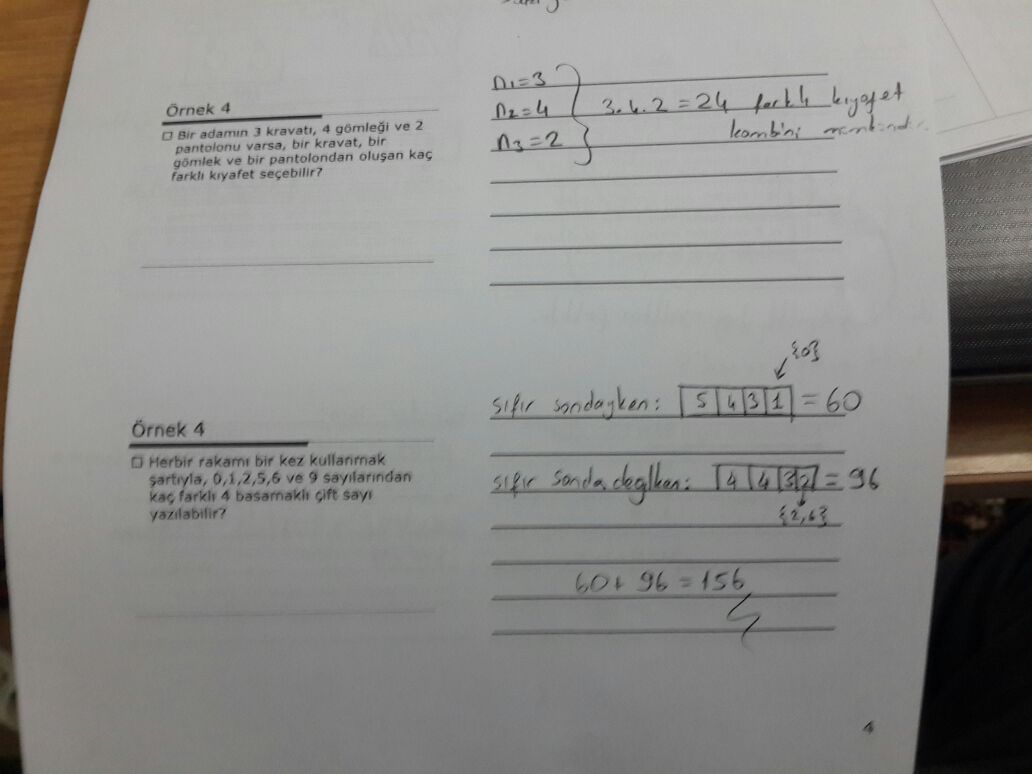 Örnek 4
Bir adamın 3 kravatı, 4 gömleği ve 2
pantolonu varsa, bir kravat, bir
gömlek ve bir pantolondan oluşan kaç
farklı kıyafet seçebilir?
n1=3
n2=4
n3=2
3.4.2=24 farklı kıyafet
kombini mümkündür.
Örnek 4
Herbir rakamı bir kez kullanmak
şartıyla, 0,1,2,5,6 ve 9 sayılarından
kaç farklı 4 basamaklı çift sayı
yazılabilir?
{0}
sıfır sondayken: 5 4 3 1 = 60
sıfır sonda değilken: 4 4 3 2 = 96
{2,6}
60+96=156
4